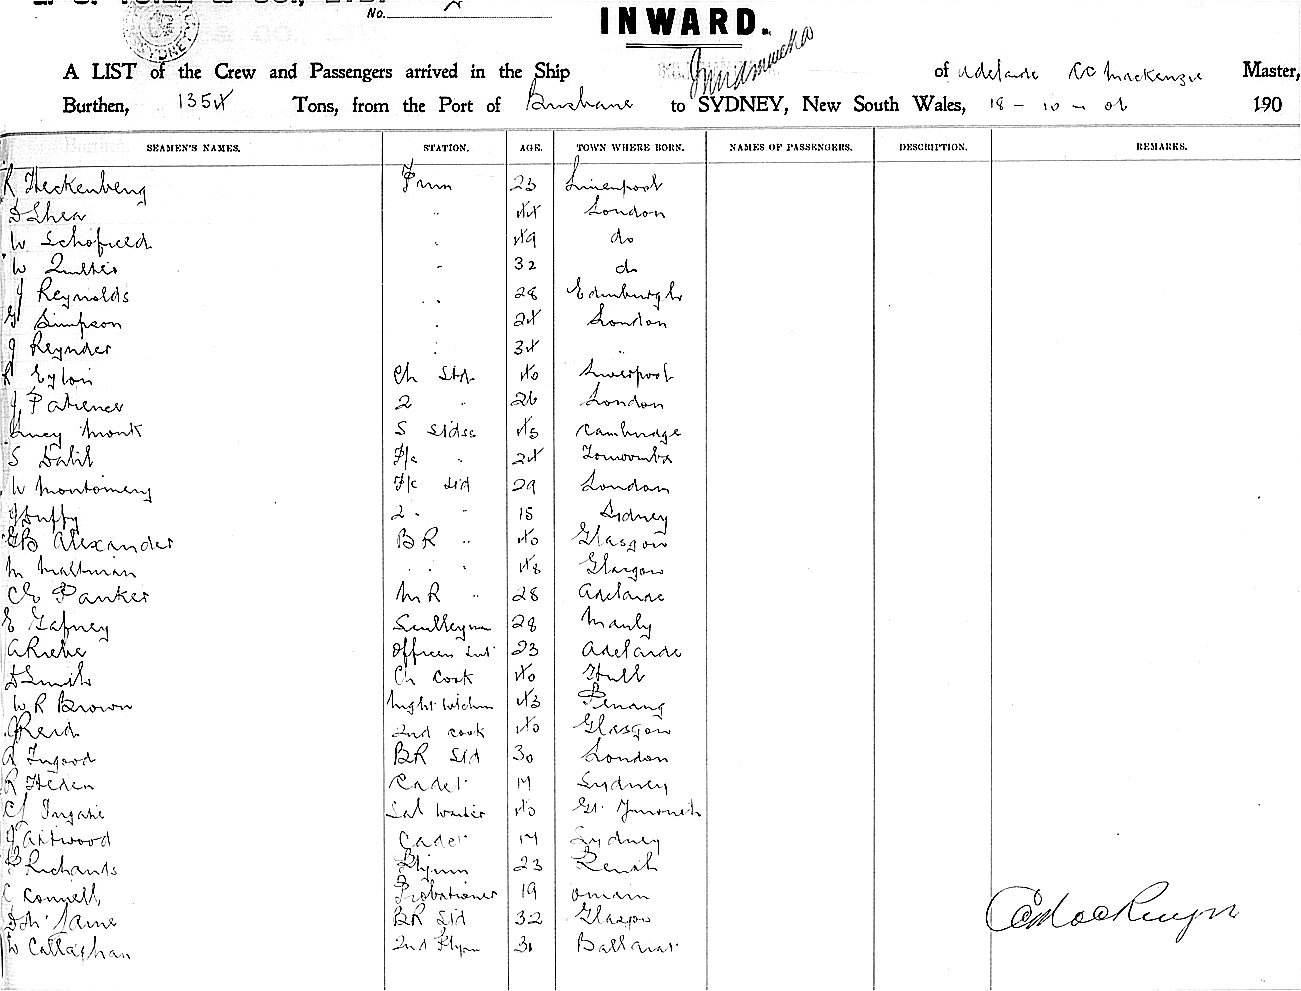 No.
INWARD.
A LIST of the Crew and Passengers arrived in the Ship of Adelaide CC Mackenzie Master,
Burthen, 1354 Tons, from the Port of Brisbane to SYDNEY, New South Wales, 18 - 10 - 06 190
SEAMEN'S NAMES. STATION. AGE. TOWN WHERE BORN. NAMES OF PASSENGERS. DESCRIPTION. REMARKS.
R Heckenberg Frmn 23 Liverpool
D Shea " 44 London
W Schofield " 49 do
W Quilter " 32 do
J Reynolds " 28 Edinburgh
G Simpson " 24 London
J Reynder " 34 "
R Eyton Ch Std 40 Liverpool
J Patience 2 " 26 London
Lucy Monk S Stdss 45 Cambridge
S Dabit F/c " 24 Toowoomba
W Montgomery F/c Std 29 London
J Duffy 2 " " 18 Sydney
GB Alexander BR " 40 Glasgow
M Maltman " " " 48 Glasgow
Ch Parker MR " 28 Adelaide
E Gafney Sculleyman 28 Manly
A Riebe Officers Svt 23 Adelaide
D Smith Ch Cook 40 Hull
W R Brown Night Wtchmn 43 Penang
J Reid 2nd Cook 40 Glasgow
A Ingood BR Std 30 London
R Heden Cadet 17 Sydney
CJ Ingate Sal Waiter 40 Gt Yarmouth
J Attwood Cadet 17 Sydney
P Richards Ptymn 23
C Connell Probationer 19
D McLaine BR Std 32 Glasgow
W Callaghan 2nd Ptymn 31 Ballarat
CC Mackenzie